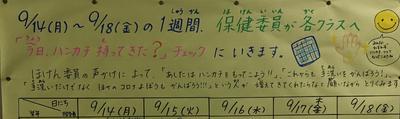 9/14(月)〜9/18(金)の1週間、保健委員が各クラスへ
「今日、ハンカチ持ってきた?」チェックにいきます。
ほけん委員の声かけによって、「あしたはハンカチをもってこよう!!」、「これからも手洗いをがんばろう!」、
「手洗いだけでなく ほかのコロナよぼうもがんばろう!!!」という人が増えてきてくれたらな
日にち 9/14(月) 9/15(火) 9/16(水) 9/17(木) 9/18(金)